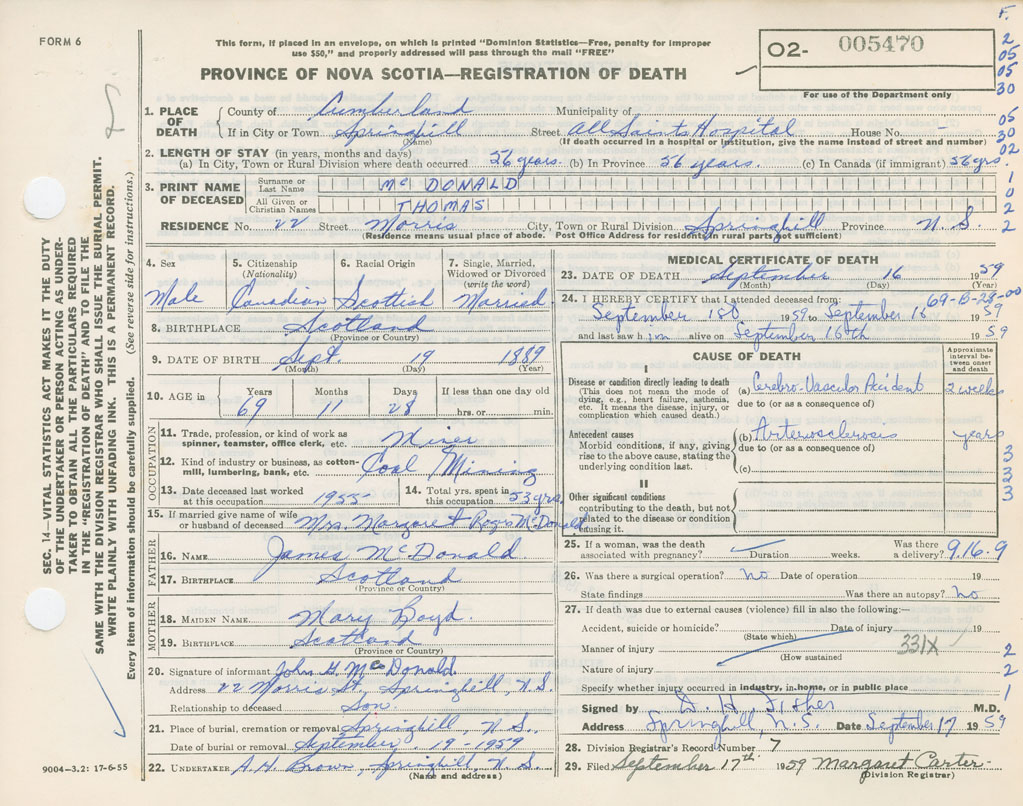 F.
FORM 6
This form, if placed in an envelope, on which is printed "Dominion Statistics—Free, penalty for improper
use $50," and properly addressed will pass through the mail "FREE"
O2- 005470
For use of the Department only
PROVINCE OF NOVA SCOTIA—REGISTRATION OF DEATH
2
05
05
30
05
30
02
1
0
2
2
1. PLACE OF DEATH
County of Cumberland Municipality of
If in City or Town Springhill Street All Saints Hospital House No. -
(Name) (If death occurred in a hospital or institution, give the name instead of street and number)
2. LENGTH OF STAY (in years, months and days)
(a) In City, Town or Rural Division where death occurred 56 years. (b) In Province 56 years. (c) In Canada (if immigrant) 56 yrs.
3. PRINT NAME OF DECEASED
Surname or Last Name McDONALD
All Given or Christian Names THOMAS
RESIDENCE No. 22 Street Morris City, Town or Rural Division Springhill Province N.S.
(Residence means usual place of abode. Post Office Address for residents in rural parts not sufficient)
4. Sex Male
5. Citizenship (Nationality) Canadian
6. Racial Origin Scottish
7. Single, Married, Widowed or Divorced (write the word) Married
8. BIRTHPLACE Scotland
(Province or Country)
9. DATE OF BIRTH Sept. 19 1889
(Month) (Day) (Year)
10. AGE in Years 69 Months 11 Days 28 If less than one day old hrs. or min.
OCCUPATION
11. Trade, profession, or kind of work as spinner, teamster, office clerk, etc. Miner
12. Kind of industry or business, as cotton-mill, lumbering, bank, etc. Coal Mining
13. Date deceased last worked at this occupation 1955
14. Total yrs. spent in this occupation 53 yrs.
15. If married give name of wife or husband of deceased Mrs. Margaret McDonald
FATHER
16. NAME James McDonald
17. BIRTHPLACE Scotland
(Province or Country)
MOTHER
18. MAIDEN NAME Mary Boyd.
19. BIRTHPLACE Scotland
(Province or Country)
20. Signature of informant John H. McDonald.
Address 22 Morris St., Springhill, N.S.
Relationship to deceased Son.
21. Place of burial, cremation or removal Springhill, N.S.
Date of burial or removal September 19-1959
22. UNDERTAKER A.H. Brown, Springhill N.S.
(Name and address)
MEDICAL CERTIFICATE OF DEATH
23. DATE OF DEATH September 16 1959
(Month) (Day) (Year)
69-B-28-00
24. I HEREBY CERTIFY that I attended deceased from:
September 1st 1959 to September 16 1959
and last saw him alive on September 16th 1959
CAUSE OF DEATH
Approximate interval between onset and death
I
Disease or condition directly leading to death
(This does not mean the mode of dying, e.g., heart failure, asthenia, etc. It means the disease, injury, or complication which caused death.)
(a) Cerebro-Vascular Accident 2 weeks
due to (or as a consequence of)
Antecedent causes
Morbid conditions, if any, giving rise to the above cause, stating the underlying condition last.
(b) Arteriosclerosis years
due to (or as a consequence of)
(c)
3
3
2
3
II
Other significant conditions
contributing to the death, but not related to the disease or condition causing it.
25. If a woman, was the death associated with pregnancy? Duration weeks. Was there a delivery? 9.16.9
26. Was there a surgical operation? no Date of operation 19
State findings Was there an autopsy? no
27. If death was due to external causes (violence) fill in also the following:—
Accident, suicide or homicide? Date of injury 19
(State which)
Manner of injury 331X 2
(How sustained
Nature of injury 2
Specify whether injury occurred in industry, in home, or in public place 1
Signed by A. H. Fisher M.D.
Address Springhill, N.S. Date September 17 1959
28. Division Registrar's Record Number 7
29. Filed September 17th 1959 Margaret Carter
(Division Registrar)
SEC. 14—VITAL STATISTICS ACT MAKES IT THE DUTY
OF THE UNDERTAKER OR PERSON ACTING AS UNDER-
TAKER TO OBTAIN ALL THE PARTICULARS REQUIRED
IN THE "REGISTRATION OF DEATH" AND TO FILE THE
SAME WITH THE DIVISION REGISTRAR WHO SHALL ISSUE THE BURIAL PERMIT.
WRITE PLAINLY WITH UNFADING INK. THIS IS A PERMANENT RECORD.
Every item of information should be carefully supplied. (See reverse side for instructions.)
9004-3.2: 17-6-55